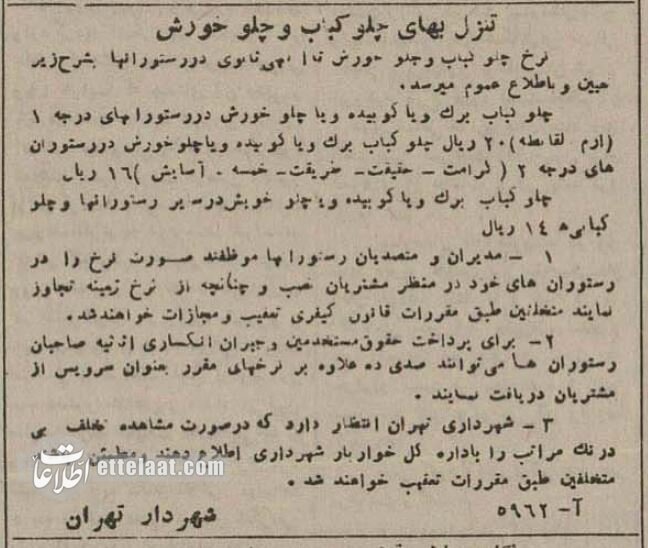 تنزل بهای چلو کباب و چلو خورش
نرخ چلو کباب و چلو خورش تا آگهی ثانوی در رستورانها بشرح زیر
تعیین و باطلاع عموم میرسد.
چلو کباب برك و یا کوبیده و یا چلو خورش در رستورانهای درجه ۱
(ارم لقانطه) ۲۰ ریال چلو کباب برك و یا کوبیده و یا چلو خورش در رستوران
های درجه ۲ (کرامت ـ حقیقت ـ طریقت ـ خمسه ـ آسایش) ۱۶ ریال
چلو کباب برك و یا کوبیده و یا چلو خورش در سایر رستورانها و چلو
کبابی‌ها ۱۴ ریال
۱ ـ مدیران و متصدیان رستورانها موظفند صورت نرخ را در
رستوران های خود در منظر مشتریان نصب و چنانچه از نرخ تجاوز
نمایند متخلفین طبق مقررات قانون کیفری تعقیب و مجازات خواهند شد.
۲ـ برای پرداخت حقوق مستخدمین و جبران انکساری اثاثیه صاحبان
رستوران ها می‌توانند صدی ده علاوه بر نرخهای مقرر بعنوان سرویس از
مشتریان دریافت نمایند.
۳ ـ شهرداری تهران انتظار دارد که در صورت مشاهده تخلف بی
درنك مراتب را باداره کل خواربار شهرداری اطلاع دهند و مطمئن
متخلفین طبق مقررات تعقیب خواهند شد.
آ- ۵۹۶۲
شهردار تهران
اطلاعات ettelaat.com